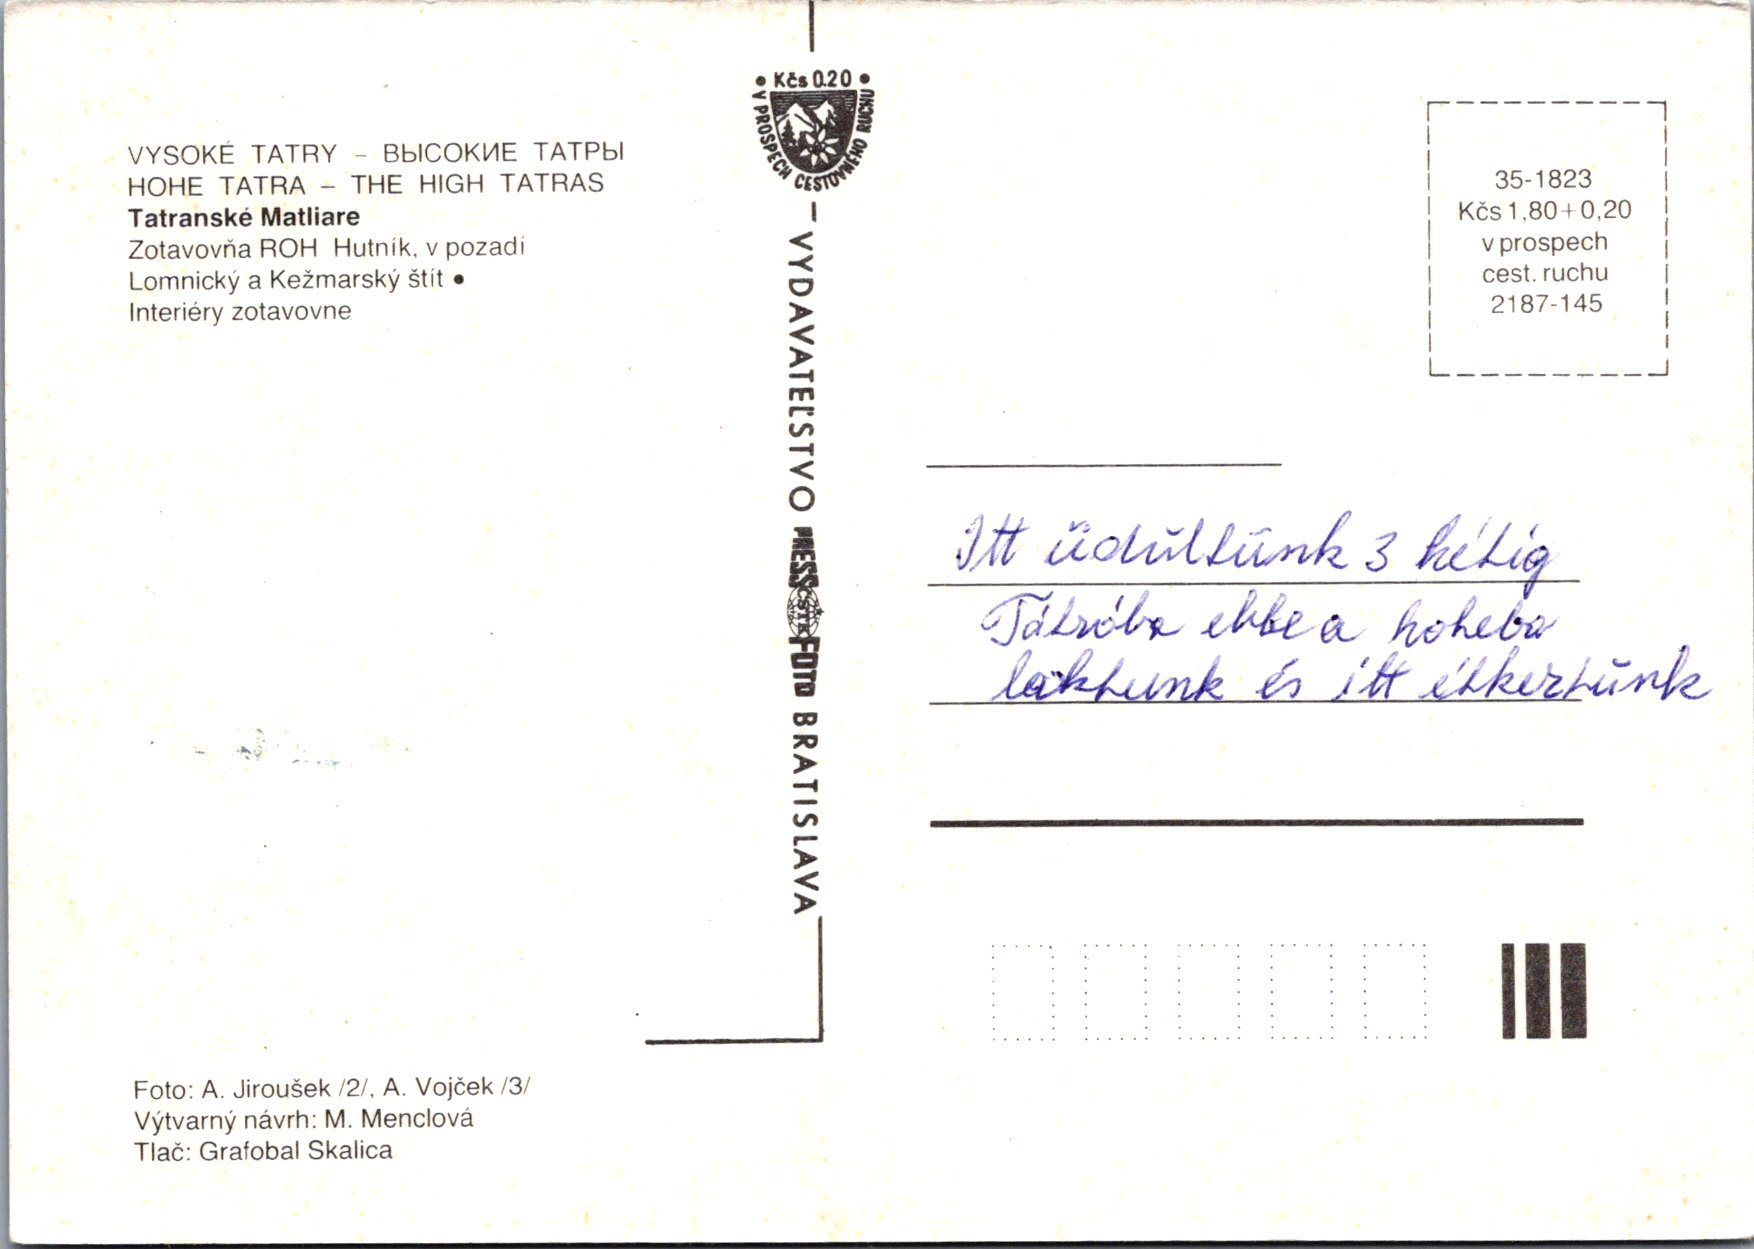 VYSOKÉ TATRY – ВЫСОКИЕ ТАТРЫ
HOHE TATRA – THE HIGH TATRAS
Tatranské Matliare
Zotavovňa ROH Hutník, v pozadí
Lomnický a Kežmarský štít •
Interiéry zotavovne
• Kčs 0.20 •
V PROSPECH CESTOVNÉHO RUCHU
– VYDAVATEĽSTVO PRESSFOTO BRATISLAVA
ČSTK
35-1823
Kčs 1,80+0,20
v prospech
cest. ruchu
2187-145
Itt üdültünk 3 hétig
Tátróba ebbe a hoteba
laktunk és itt étkeztünk
Foto: A. Jiroušek /2/, A. Vojček /3/
Výtvarný návrh: M. Menclová
Tlač: Grafobal Skalica